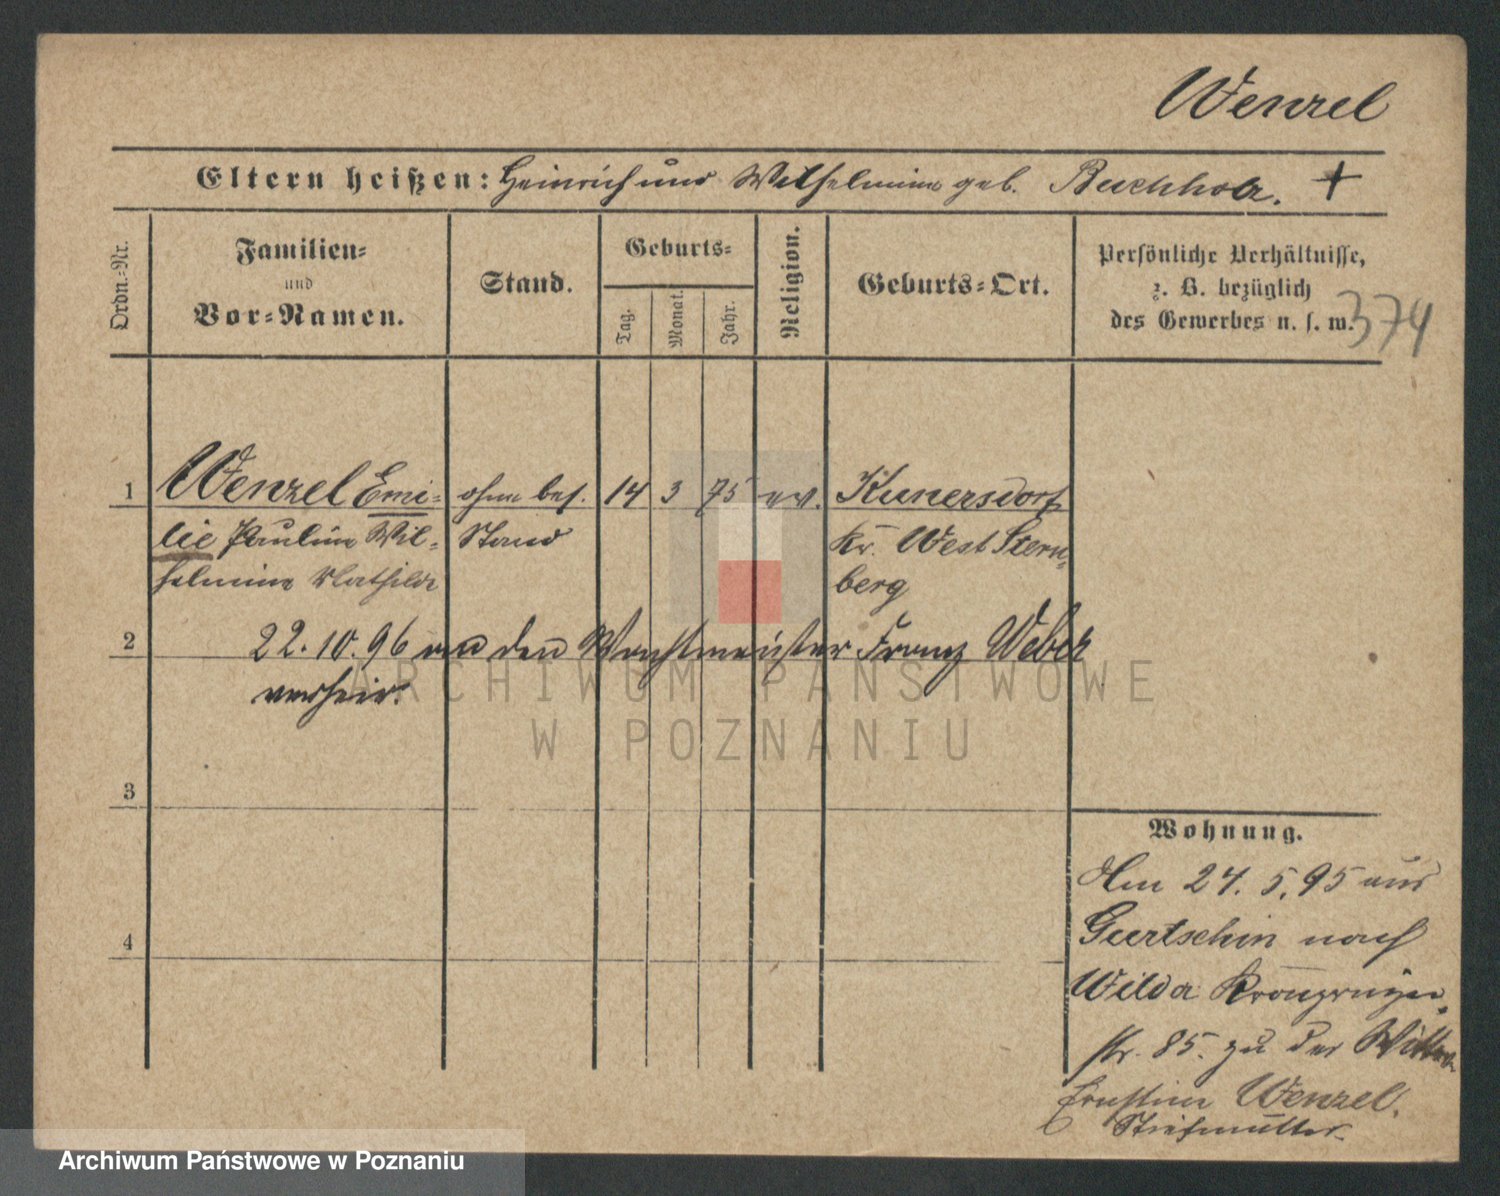 Wenzel
Eltern heißen: Heinrich und Wilhelmine geb. Buchholz. +
Ordn.-Nr.
Familien-
und
Vor-Namen.
Stand.
Geburts-
Tag.
Monat.
Jahr.
Religion.
Geburts-Ort.
Persönliche Verhältnisse,
z. B. bezüglich
des Gewerbes u. s. w.
374
1 Wenzel Emi- ohne bes. 14 3 75 ev. Kunersdorf
lie Pauline Wil- Stand Kr. West Stern-
helmine Mathilde berg
2 22.10.96 an den Wachtmeister Franz Weber
verheir.
3
4
Wohnung.
Am 24.5.95 aus
Gurtschin nach
Wilda Kronprinzen-
str. 85. zu der Wittwe
Ernstine Wenzel.
Stiefmutter.
ARCHIWUM PAŃSTWOWE
W POZNANIU
Archiwum Państwowe w Poznaniu